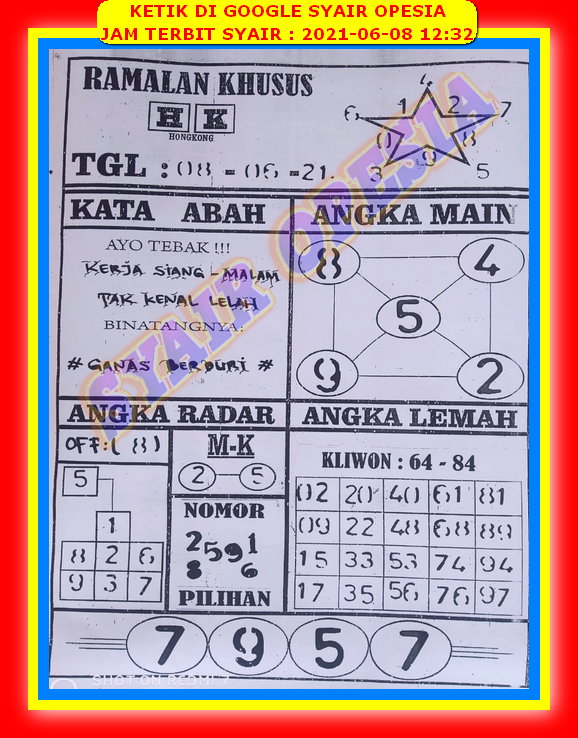 KETIK DI GOOGLE SYAIR OPESIA
JAM TERBIT SYAIR : 2021-06-08 12:32
RAMALAN KHUSUS
H K
HONGKONG
TGL : 08 - 06 - 21.
4
6 1 2 7
0 8
9
3 5
KATA ABAH
AYO TEBAK !!!
KERJA SIANG - MALAM
TAK KENAL LELAH
BINATANGNYA:
# GANAS BERDURI #
ANGKA MAIN
8 4
5
9 2
SYAIR OPESIA
ANGKA RADAR
OFF: ( 8 )
5
1
8 2 6
9 3 7
M-K
2 - 5
NOMOR
2 5 9 1
8 6
PILIHAN
ANGKA LEMAH
KLIWON : 64 - 84
02 20 40 61 81
09 22 48 68 89
15 33 53 74 94
17 35 56 76 97
7 9 5 7
SHOT ON REDMI 7